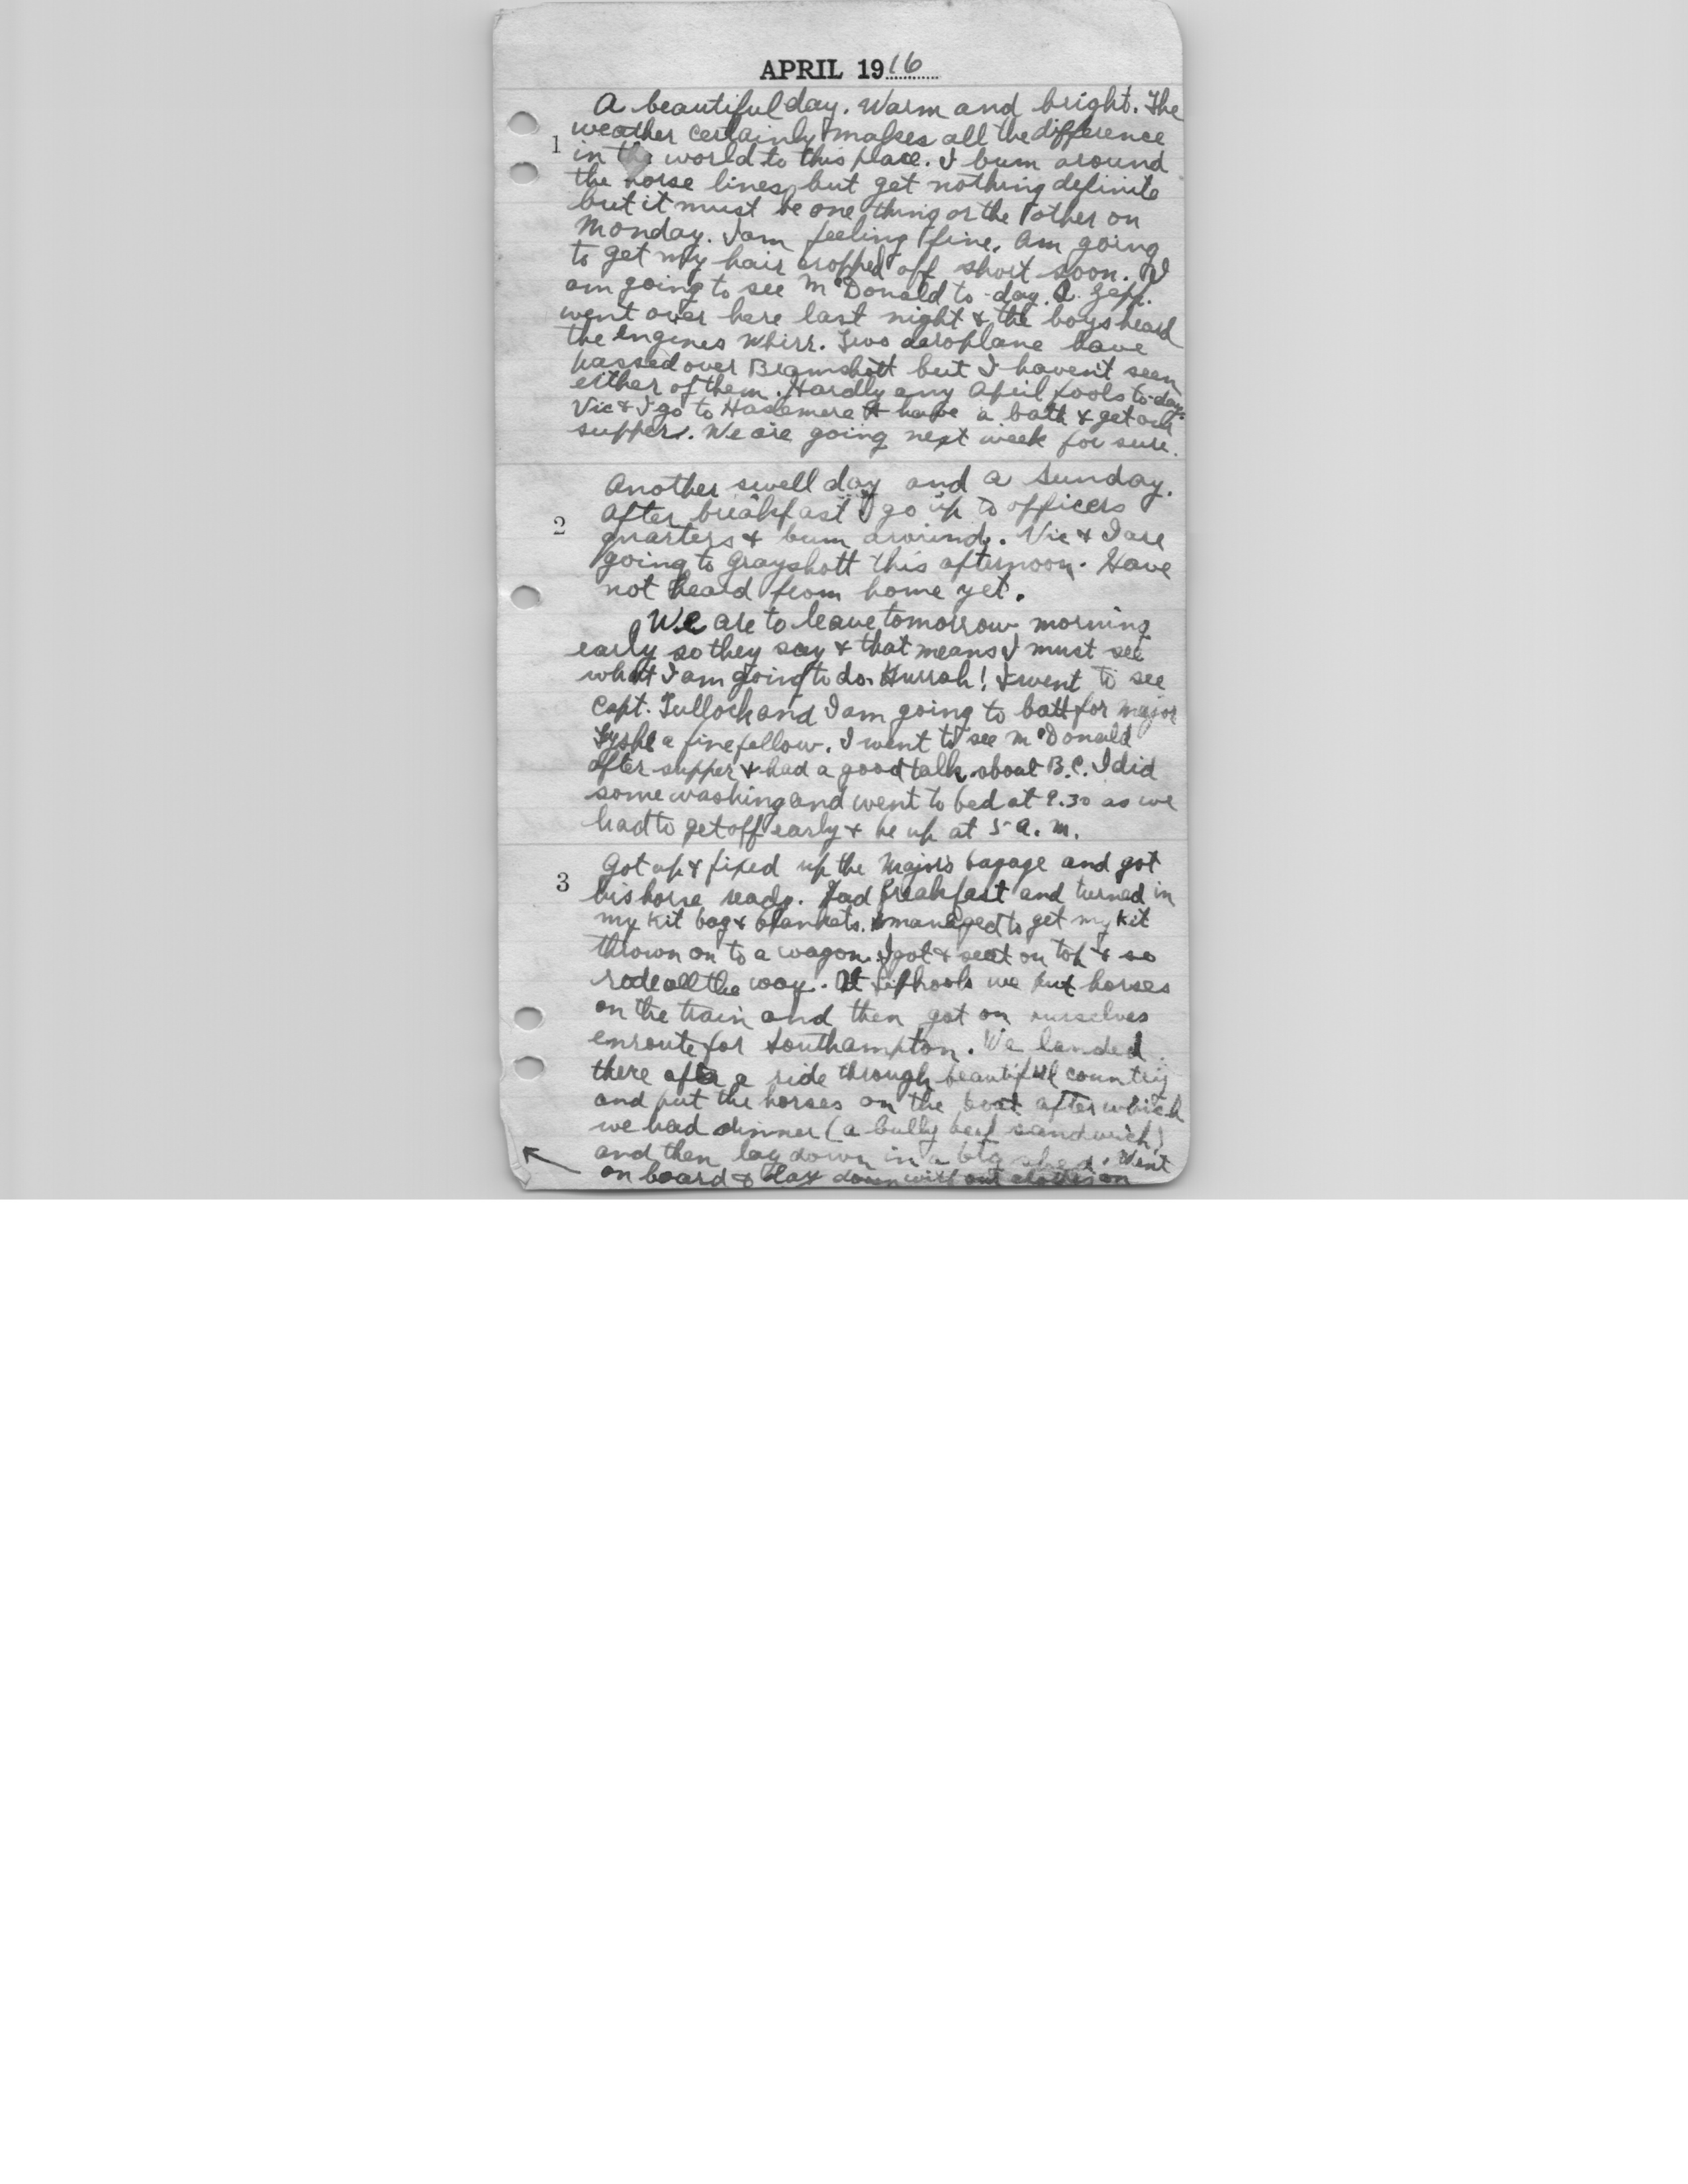 APRIL 1916
A beautiful day. Warm and bright. The
weather certainly makes all the difference
1
in the world to this place. I bum around
the horse lines but get nothing definite
but it must be one thing or the other on
Monday. I am feeling fine. Am going
to get my hair cropped off short soon. I
am going to see McDonald to-day. A Zepp.
went over here last night & the boys heard
the engines whirr. Two aeroplane have
passed over Bramshott but I haven't seen
either of them. Hardly any April fools to-day.
Vic & I go to Haslemere & have a bath & get our
supper. We are going next week for sure.
Another swell day and a Sunday.
2
After breakfast I go up to officers
quarters & bum around. Vic & I are
going to Grayshott this afternoon. Have
not heard from home yet.
We are to leave tomorrow morning
early so they say & that means I must see
what I am going to do. Hurrah! I went to see
Capt. Tullock and I am going to batt for Major
a fine fellow. I went to see McDonald
after supper & had a good talk about B.C. I did
some washing and went to bed at 9.30 as we
had to get off early & be up at 5 a.m.
3
Got up & fixed up the Majors bagage and got
his horse ready. Had breakfast and turned in
my kit bag & blankets. I managed to get my kit
thrown on to a wagon. I got a seat on top & so
rode all the way. At Liphook we put horses
on the train and then got on ourselves
enroute for Southampton. We landed
there after a ride through beautiful country
and put the horses on the boat after which
we had dinner (a bully beef sandwich)
and then lay down in a big shed. Went
on board & lay down with our clothes on